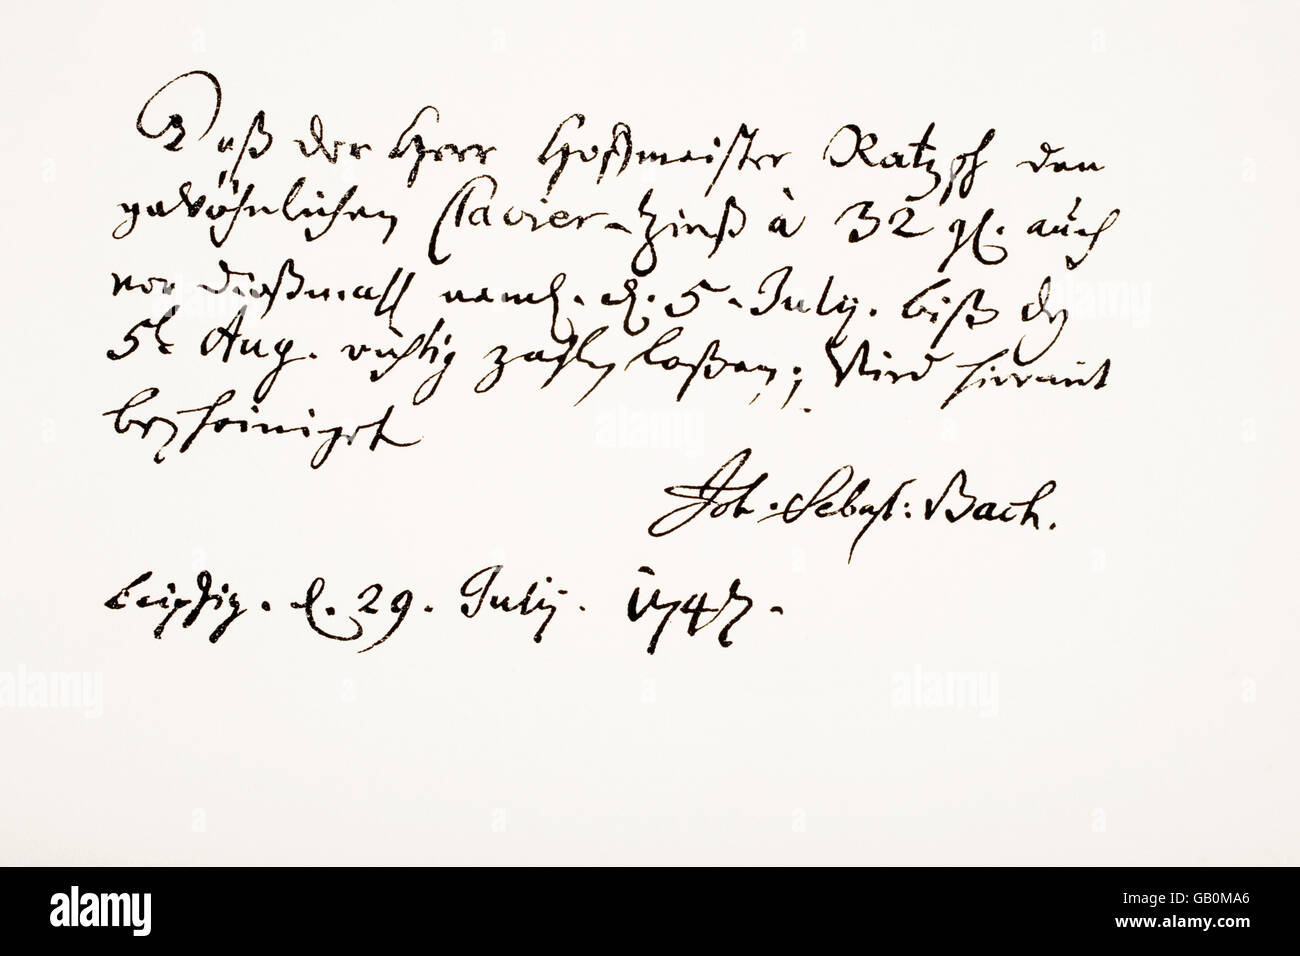 Daß der Herr Hoffmeister Ratzsch den
gewöhnlichen Clavier-Zinß à 32 gl. auch
vor dießmahl neml. d. 5. July. biß den
5t. Aug. richtig zahlen laßen; Wird hiermit
bescheiniget
Joh. Sebast: Bach.
Leipzig. d. 29. July. 1747.
alamy
Image ID: GB0MA6
www.alamy.com